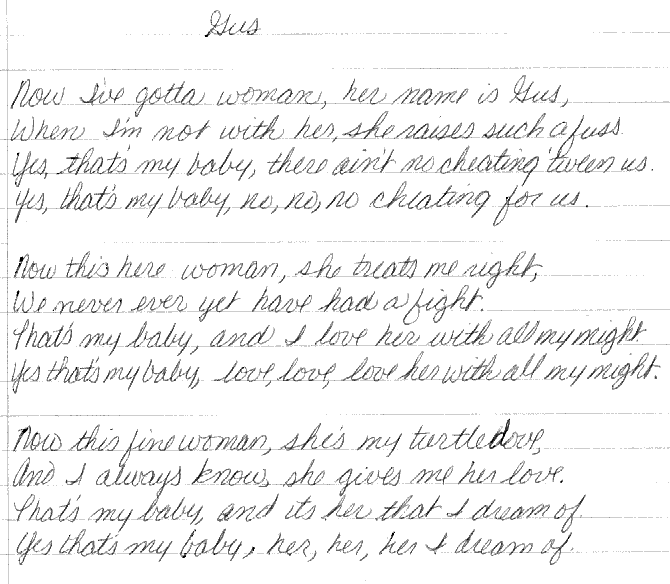 Gus
Now I've gotta woman, her name is Gus,
When I'm not with her, she raises such a fuss.
Yes, that's my baby, there ain't no cheating 'tween us.
Yes, that's my baby, no, no, no cheating for us.
Now this here woman, she treats me right,
We never ever yet have had a fight.
That's my baby, and I love her with all my might
Yes that's my baby, love, love, love her with all my might.
Now this fine woman, she's my turtledove,
And I always know, she gives me her love.
That's my baby, and its her that I dream of.
Yes that's my baby, her, her, her I dream of.